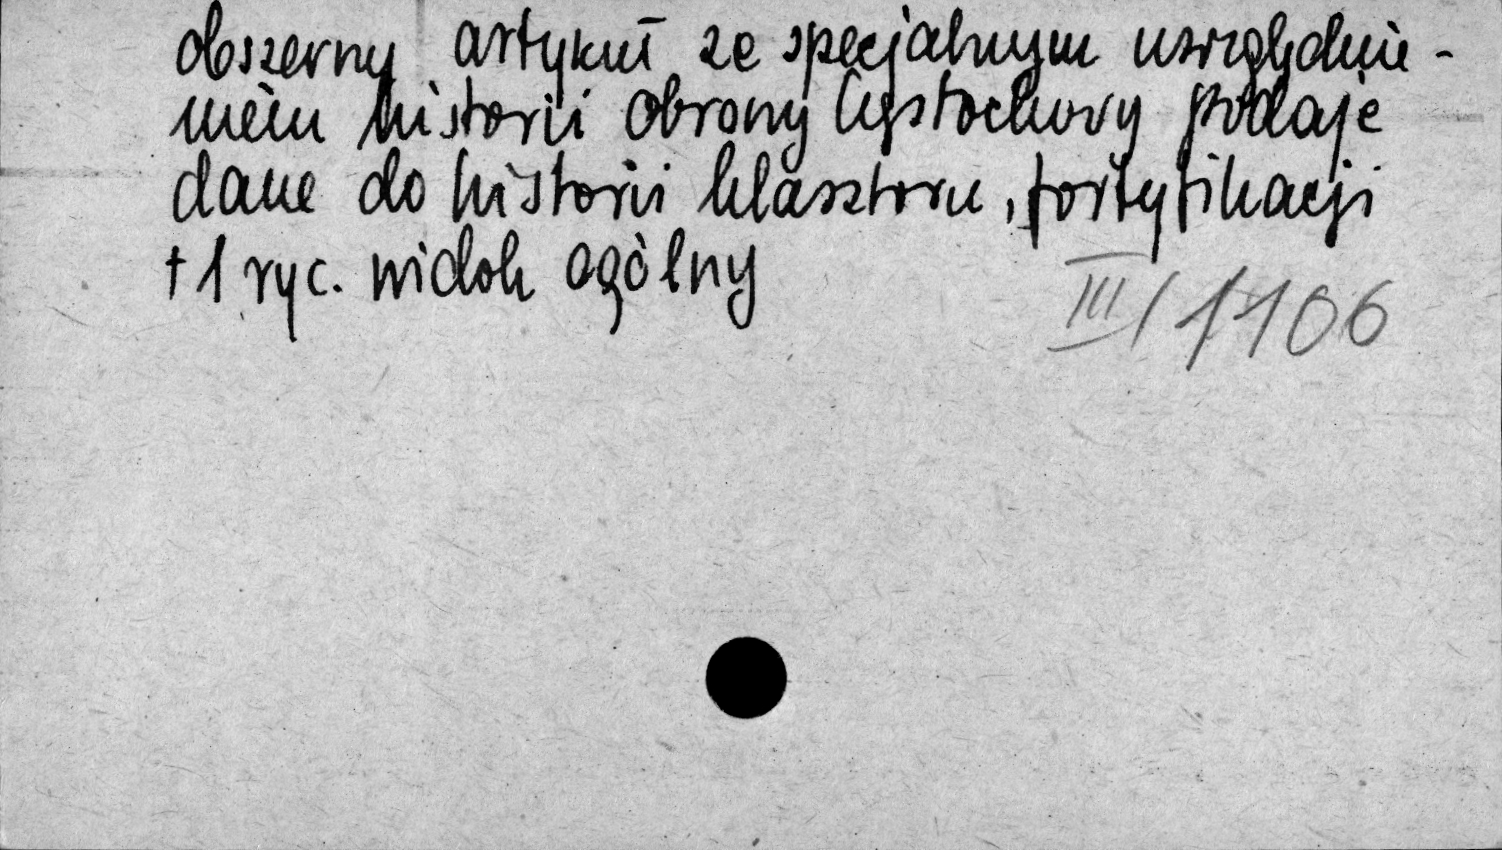 obszerny artykuł ze specjalnym uwzględnie-
niem historii obrony Częstochowy podaje
dane do historii klasztoru, fortyfikacji
+ 1 ryc. widok ogólny
III/1106